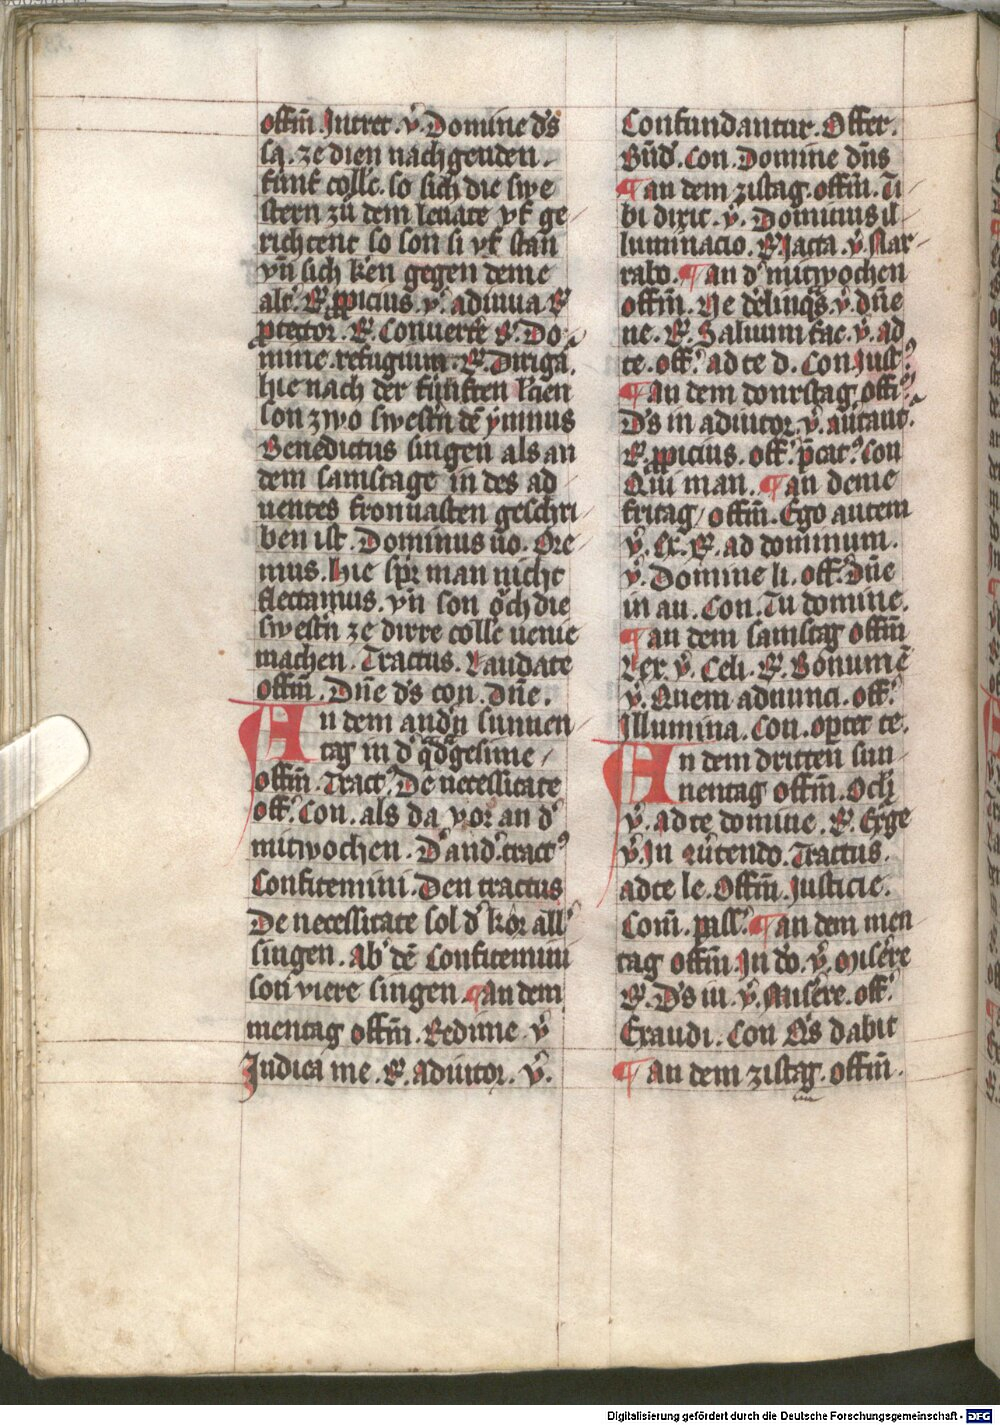 offm̄. Intret. v̓. Domine ds̄
sa. ze dien nachgenden.
fúnf coll̄e. so sich die swe
stern zů dem leuate vf ge
richtent so son si vf stan
vn̄ sich ker̄en gegen deme
alt᷑. R̓. ꝓpicius. v̓. adiuua. R̓
ꝓtector. R̓. Conuerte R̓. Do
mine. refugium. R̓. Dirigā.
hie nach der fúnften l̄cien
son zwo swestn̄ dē ymnus
Benedictus singen als an
dem samstage in des ad
uentes fronuasten geschri
ben ist. Dominus uo. Ore
mus. hie spr̄ man nicht
flectamus. vn̄ son oͮch die
swestn̄ ze dirre coll̄e uenie
machen. Tractus. Laudate
offm̄. Dn̄e ds̄ con. dn̄e.
An dem andn̄ sunnen
tag in d᷑ qͣdͣgesime
offm̄. Tract᷒. De necessitate
off᷑. Con. als da vor an d᷑
mitwochen. D᷑ and᷑. tract᷒
Confitemini. Den tractus
De necessitate sol d᷑ kor all᷑
singen. Ab᷑ dē Confitemini
son viere singen. ¶ an dem
mentag offm̄. Redime. v̓
Iudica me. R̓. adiutor. v̓.
Confundantur. Offer.
Bn̄d᷑. Con. Domine dn̄s
¶ an dem zistag. offm̄. Ti
bi dixit. v̓. Dominus il
luminacio. R̓. Iacta. v̓. Nar
rabo. ¶ an d᷑ mitwochen
offm̄. Ne d᷑elinqͣs. v̓. dn̄e
ne. R̓. Saluum fac. v̓. ad
te. off᷑. ad te d. Con Iust᷒.
¶ an dem donrstag. offm̄
Ds̄ in adiutor. v̓. au᷑tant᷑.
R̓. ꝓpicius. off᷑. p̄cat᷒. Con
Qui man. ¶ an deme
fritag / offm̄. Ego autem
v̓. Ex. R̓. ad dominum.
v̓. Domine li. off᷑. dn̄e
in au. Con. Tu domine.
¶ an dem samstag offm̄
Lex. v̓. Celi. R̓. Bonum ē
v̓. Quem adnunci. off᷑.
Illumina. Con. oportet te.
An dem dritten sun
nentag offm̄. Ocli
v̓. ad te domine. R̓. Exge
v̓. In au᷑tendo. Tractus.
ad te le. Offm̄. Iusticie.
Com̄. pass᷑. ¶ an dem men
tag offm̄. In do. v̓. Mis᷑ere
R̓. Ds̄ in. v̓. Mis᷑ere. off᷑.
Exaudi. Con Q̓s dabit
¶ an dem zistag. offm̄.
Digitalisierung gefördert durch die Deutsche Forschungsgemeinschaft - DFG